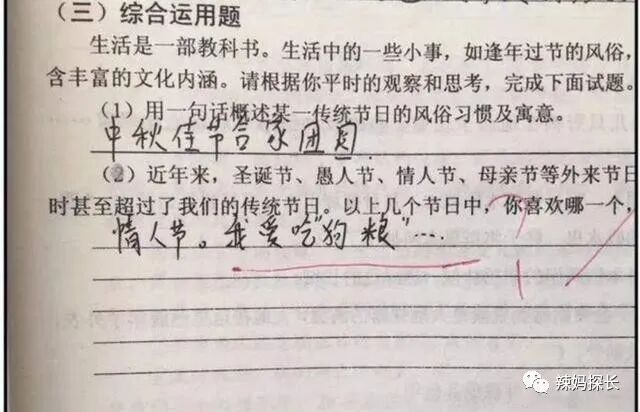 （三）综合运用题
生活是一部教科书。生活中的一些小事，如逢年过节的风俗，
含丰富的文化内涵。请根据你平时的观察和思考，完成下面试题。
（1）用一句话概述某一传统节日的风俗习惯及寓意。
中秋佳节合家团圆.
（2）近年来，圣诞节、愚人节、情人节、母亲节等外来节日
时甚至超过了我们的传统节日。以上几个节日中，你喜欢哪一个，
情人节。我爱吃"狗粮"…
?
辣妈探长